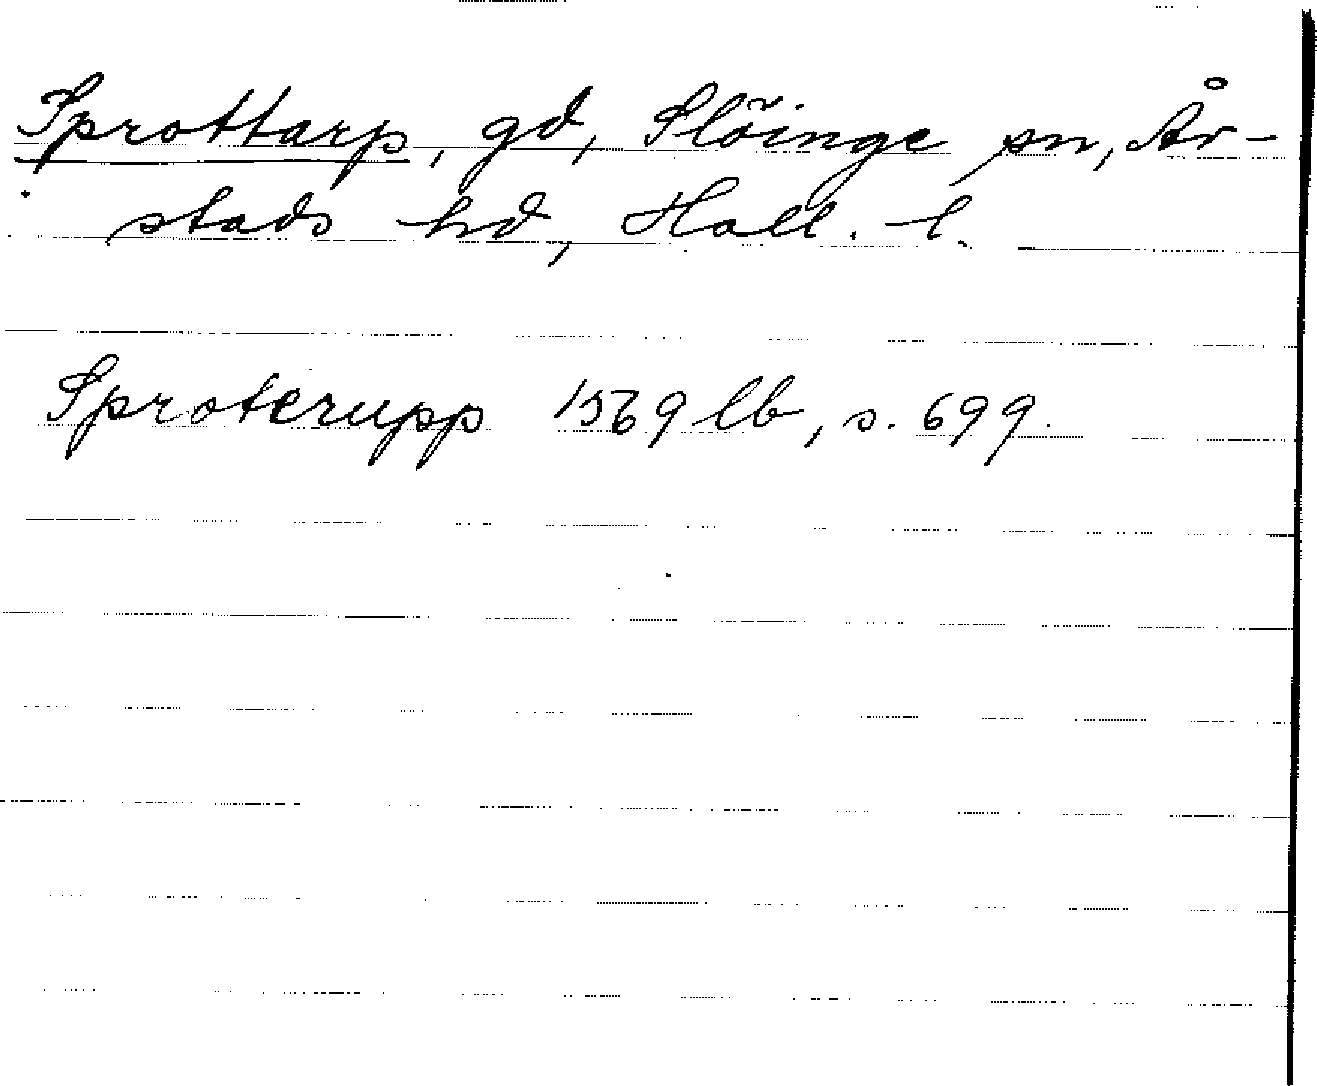 Sprottarp, gd, Slöinge sn, År-
stads hd, Hall. l.
Sproterupp 1569 lb, s. 699.